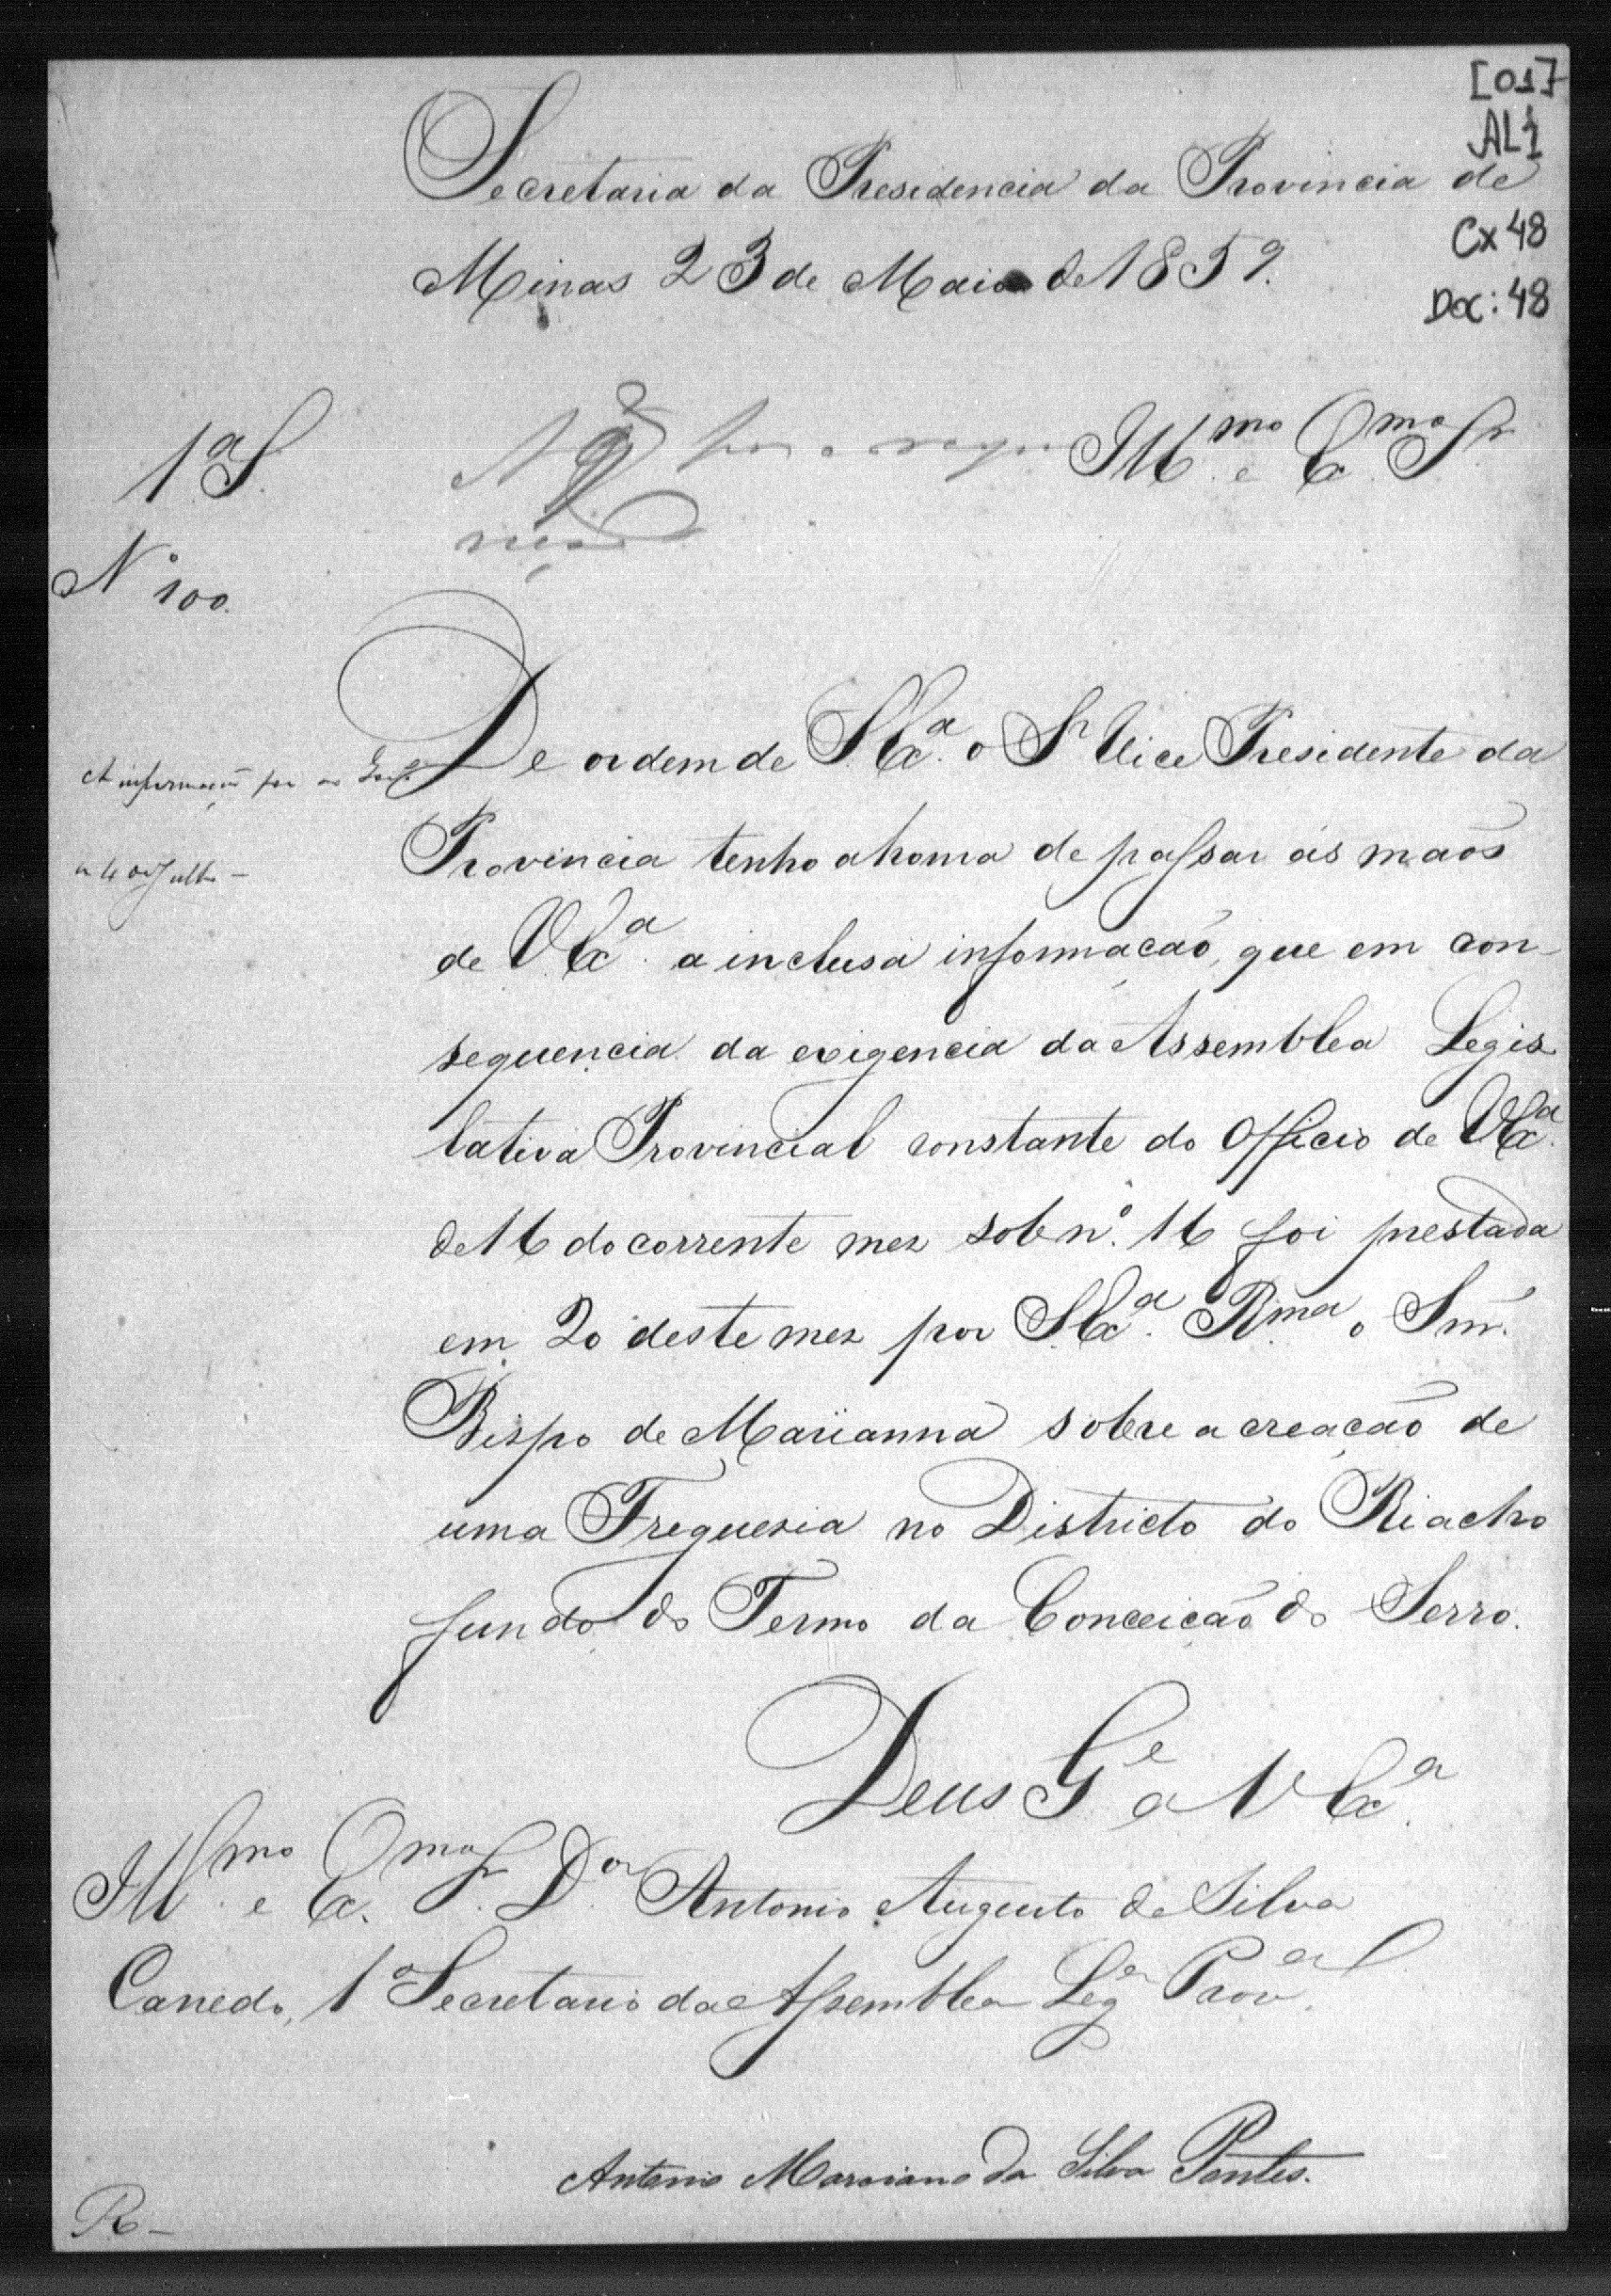 [01]
AL1
Secretaria da Presidencia da Provincia de
Cx 48
Minas 23 de Maio de 1859.
Doc: 48
1ª S.
Illmo. e Exmo. Sr.
Nº 100.
De ordem de S. Exª. o Sr. Vice Presidente da
A informação foi
Provincia tenho a honra de passar ás mãos
de Julho -
de V. Exª. a inclusa informação, que em con-
sequencia da exigencia da Assemblea Legis
lativa Provincial constante do Officio de V. Exª.
de 16 do corrente mez sob nº. 16 foi prestada
em 20 deste mez por S. Exª. Rma. o Snr.
Bispo de Marianna sobre a creação de
uma Freguesia no Districto do Riacho
fundo do Termo da Conceição do Serro.
Deus Ge. a V. Exª.
Illmo. e Exmo. Sr. Dor. Antonio Augusto da Silva
Canedo, 1º Secretario da Assemblea Lega. Proval.
Antonio Marciano da Silva Pontes.
R-